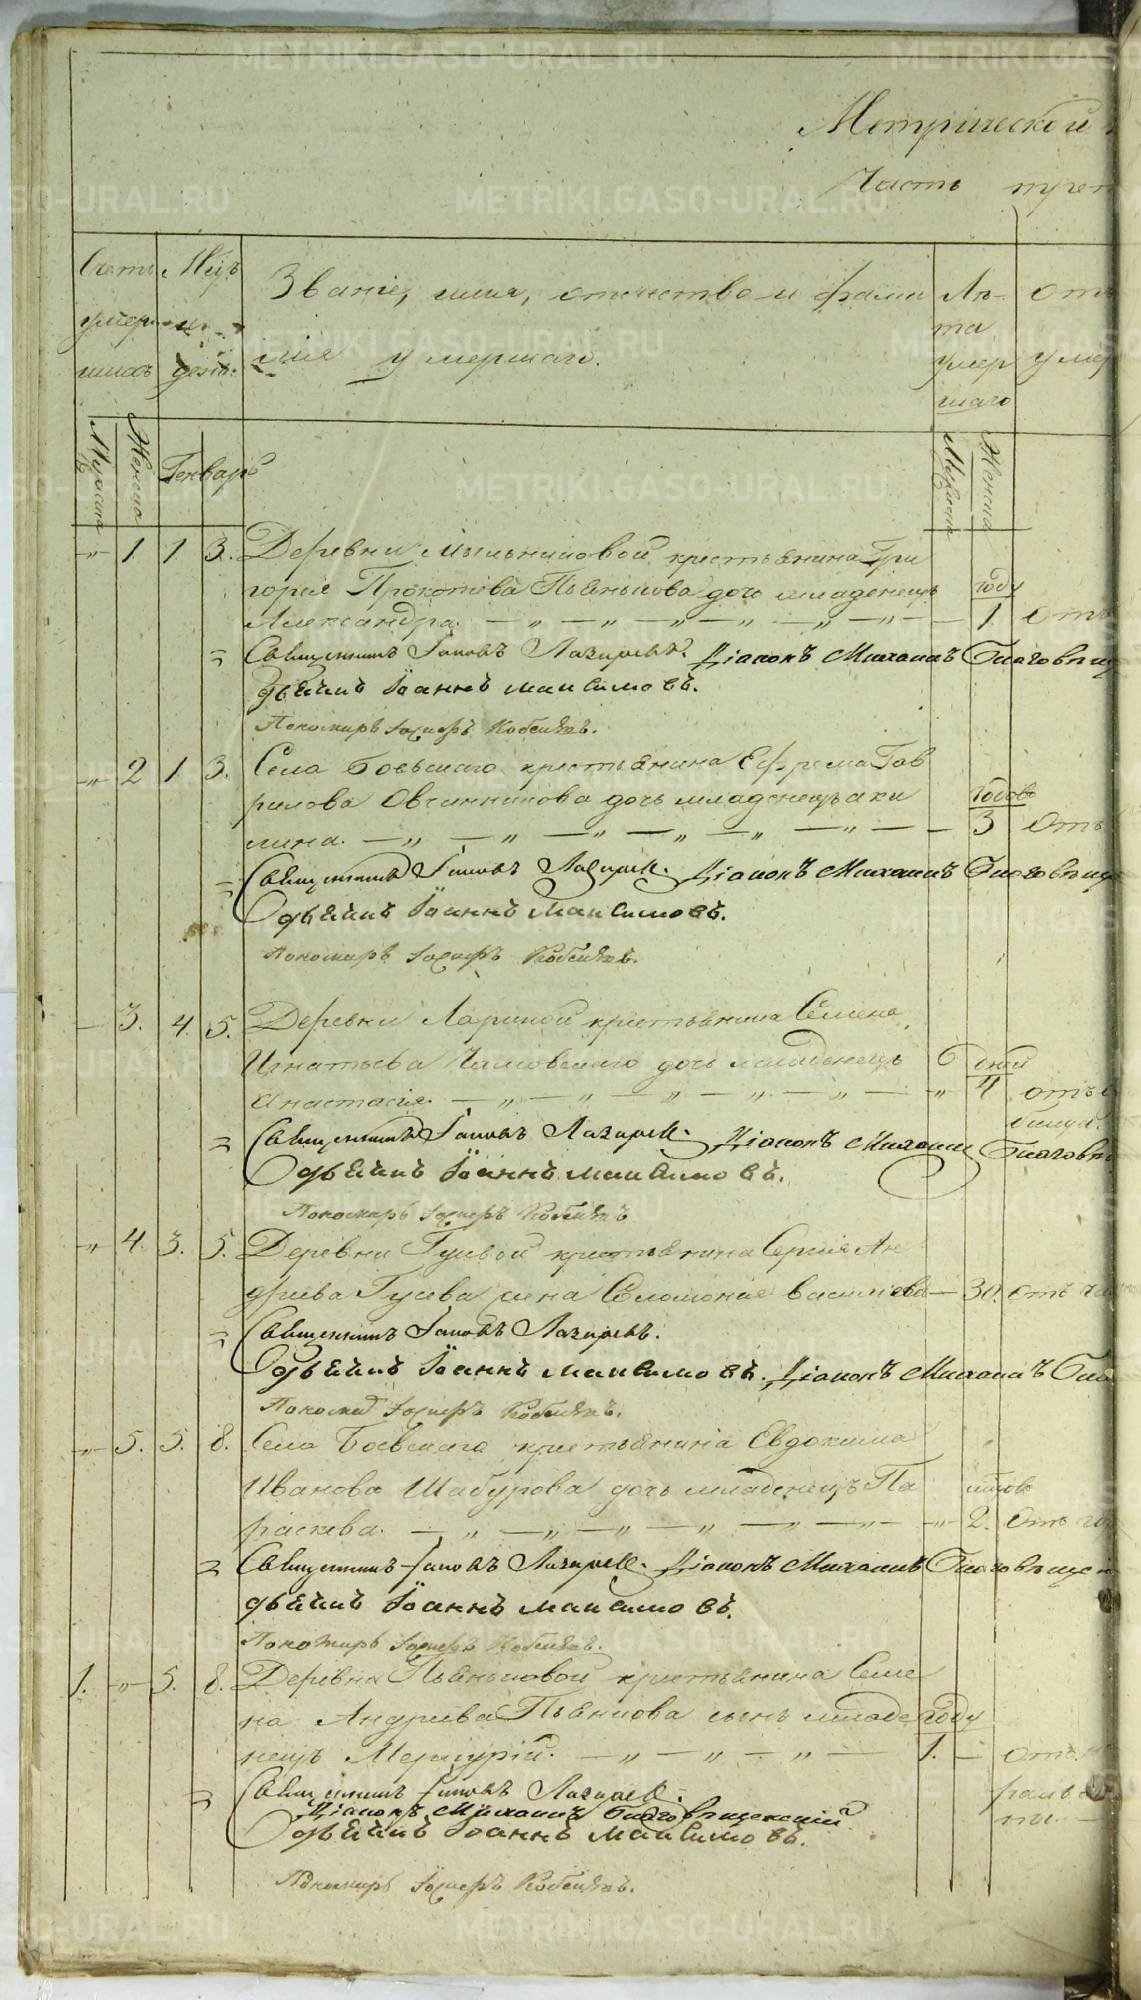 Метрической
Часть трет
Счетъ умер шихъ
Мцъ и день.
Званіе, имя, отечество и фами
лія умершаго.
Лѣ-
та
умер
шаго
отъ
умер
Мужска Женска Генварь Мужска Женска
-"- 1 1 3. Деревни Мыльниковой крестьянина Гри
горья Прокопьева Пьянкова дочь младенецъ году
Александра. 1 отъ
Священникъ Іаковъ Лазаревъ. Діаконъ Михаилъ Благовѣщ
дьячикъ Іоаннъ Максимовъ.
Пономарь Іосифъ Кобелевъ.
-"- 2 1 3. Села Боевскаго крестьянина Ефрема Гав
рилова Овчинникова дочь младенецъ аки годовъ
лина. 3 отъ
Священникъ Іаковъ Лазаревъ. Діаконъ Михаилъ Благовѣще
дьячикъ Іоаннъ Максимовъ.
Пономарь Іосифъ Кобелевъ.
- 3. 4. 5. Деревни Лариной крестьянина Семена
Игнатьева дочь младенецъ дней
Анастасія. 4 отъ
Священникъ Іаковъ Лазаревъ. Діаконъ Михаилъ Благовѣ
дьячикъ Іоаннъ Максимовъ.
Пономарь Іосифъ Кобелевъ
-"- 4. 3. 5. Деревни Гусевой крестьянина Сергія Ан
дреева Гусева жена Соломонія васильева 30. отъ ча
Священникъ Іаковъ Лазаревъ.
дьячикъ Іоаннъ Максимовъ. Діаконъ Михаилъ Бла
Пономарь Іосифъ Кобелевъ.
-"- 5. 5. 8. Села Боевскаго крестьянина Евдокима
Иванова Шабурова дочь младенецъ Па
раскева. 2. Отъ
Священникъ Іаковъ Лазаревъ. Діаконъ Михаилъ Благовѣщен
дьячикъ Іоаннъ Максимовъ.
Пономарь Іосифъ Кобелевъ.
1. -"- 5. 8. Деревни Пьянковой крестьянина Семе
на Андреева Пьянкова сынъ младе году
нецъ Меркурій. 1. - отъ
Священникъ Іаковъ Лазаревъ.
Діаконъ Михаилъ Благовѣщенскій
дьячикъ Іоаннъ Максимовъ.
Пономарь Іосифъ Кобелевъ.
METRIKI.GASO-URAL.RU